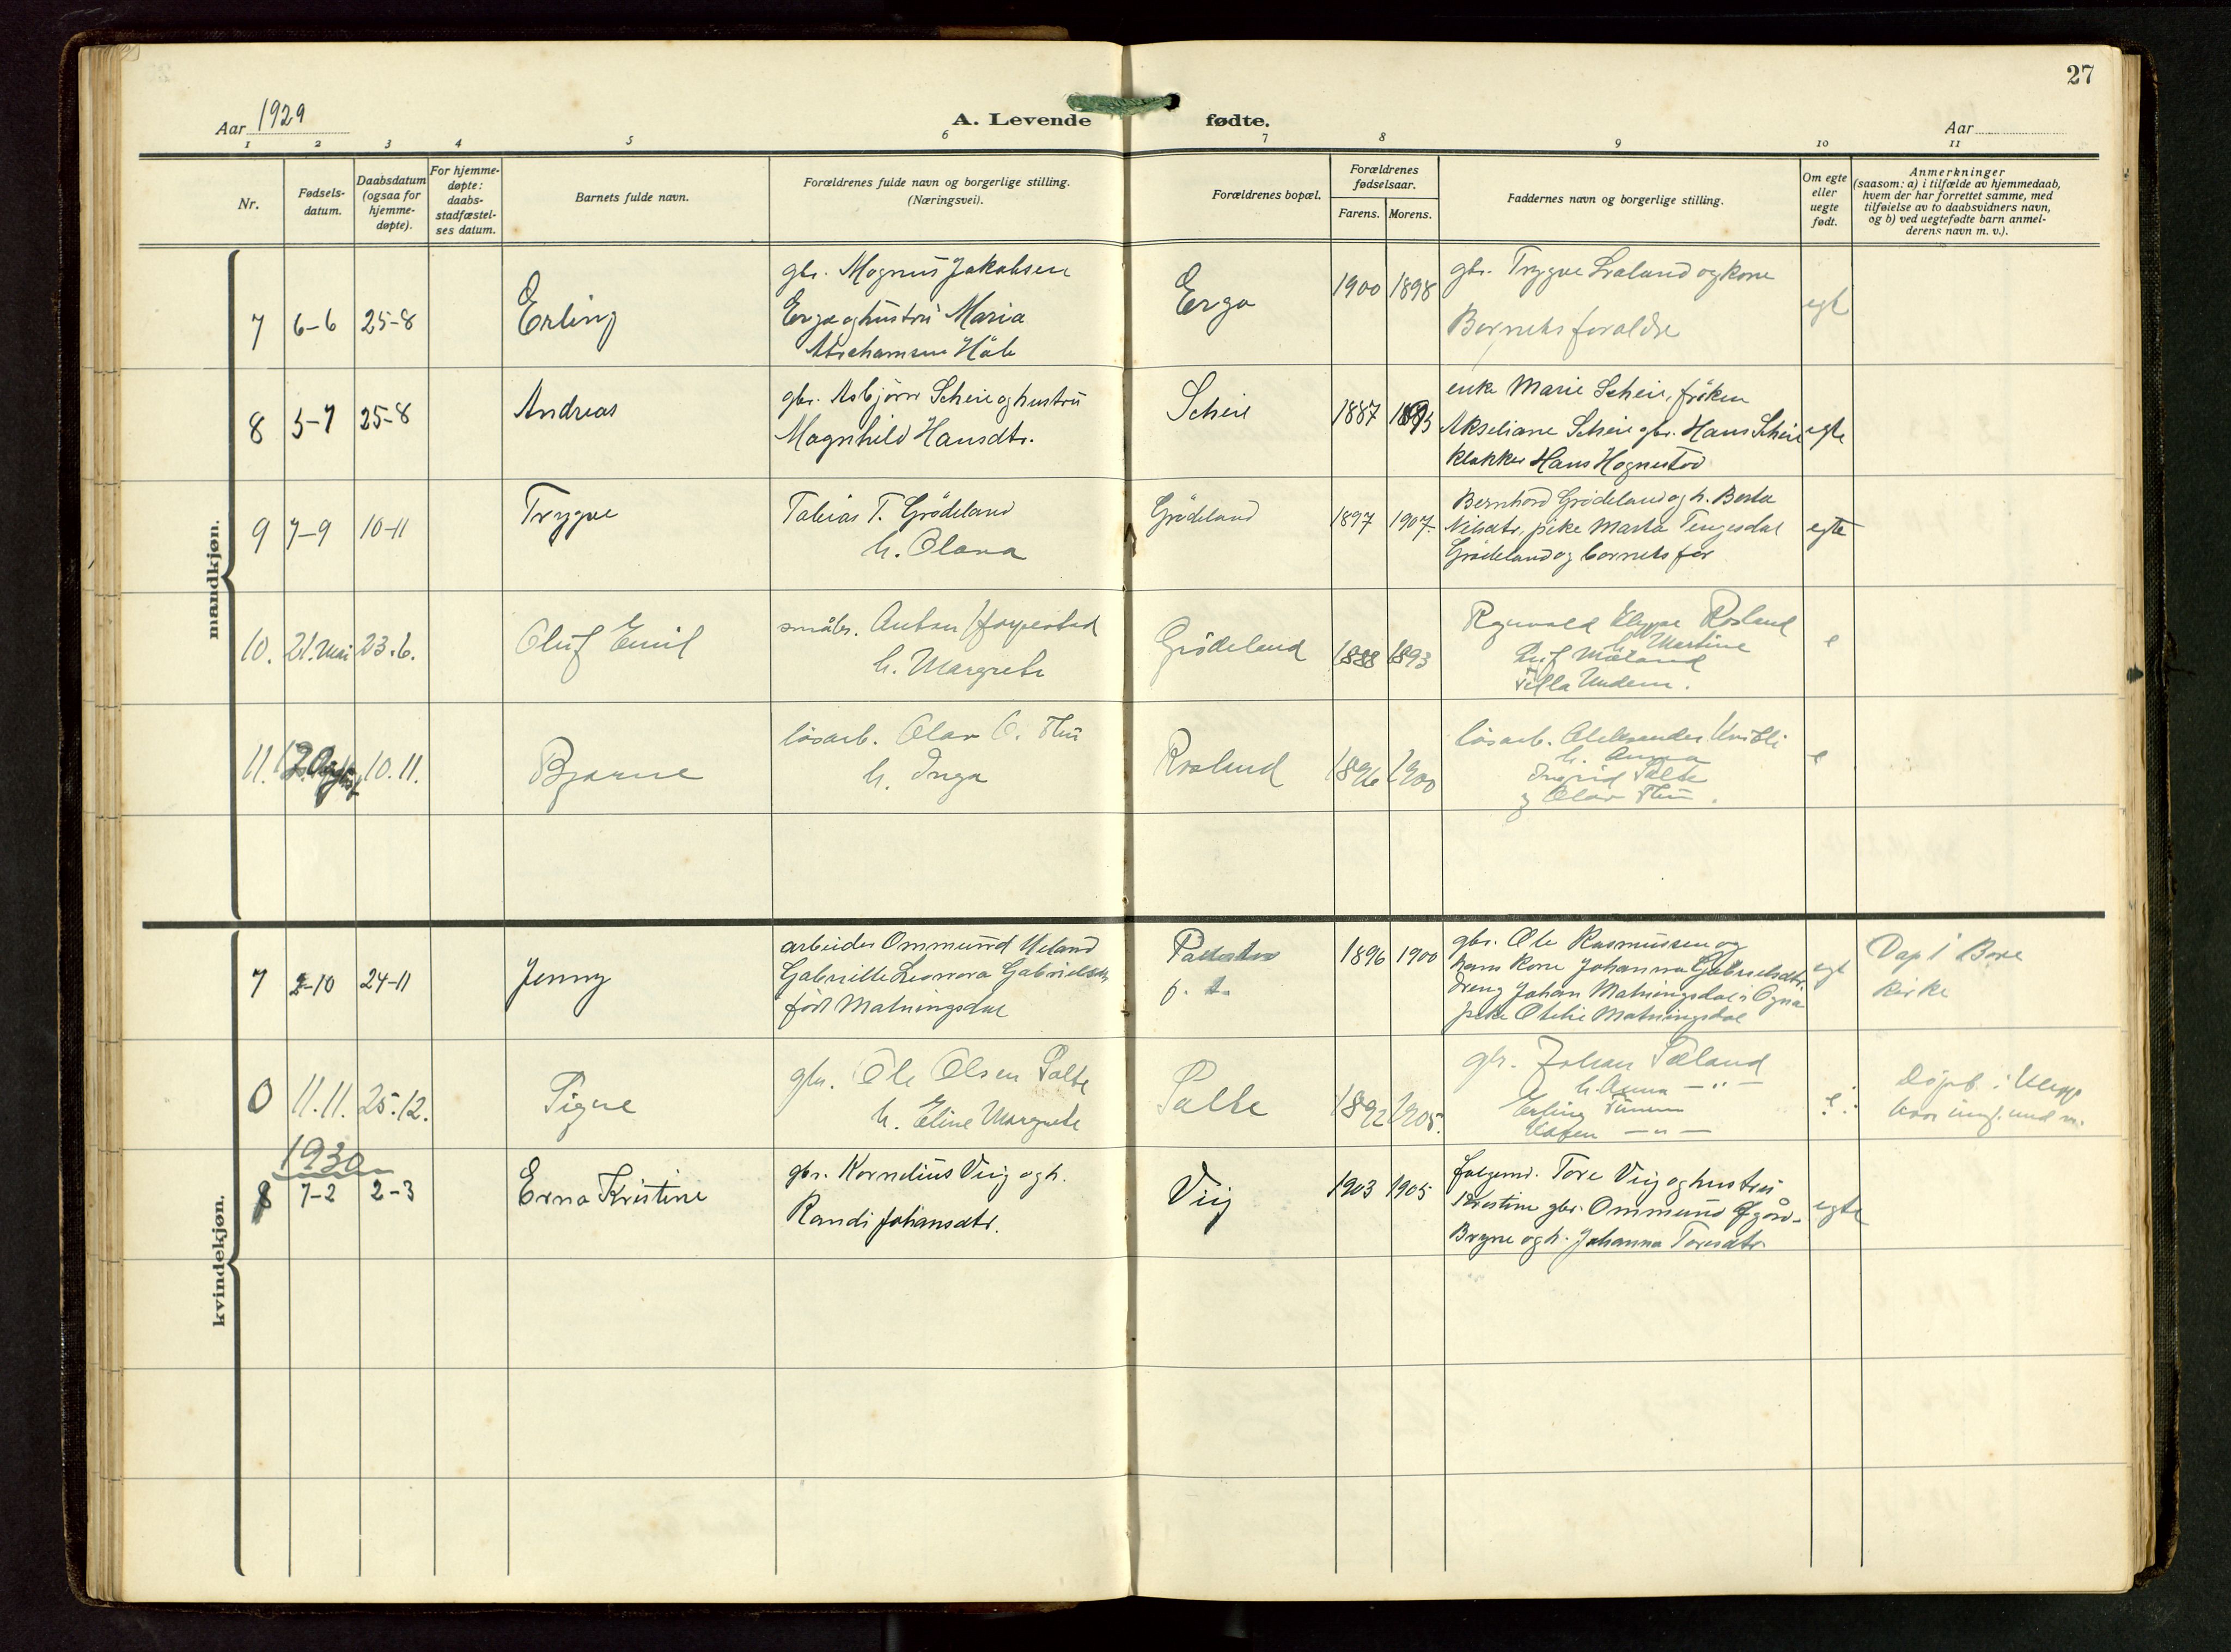 27
Aar 1929
A. Levende fødte.
Aar
1 2 3 4 5 6 7 8 9 10 11
Nr.
Fødsels-
datum.
Daabsdatum
(ogsaa for
hjemme-
døpte).
For hjemme-
døpte:
daabs-
stadfæstel-
ses datum.
Barnets fulde navn.
Forældrenes fulde navn og borgerlige stilling.
(Næringsvei).
Forældrenes bopæl.
Forældrenes
fødselsaar.
Farens. Morens.
Faddernes navn og borgerlige stilling.
Om egte
eller
uegte
født.
Anmerkninger
(saasom: a) i tilfælde av hjemmedaab,
hvem der har forrettet samme, med
tilføielse av to daabsvidners navn,
og b) ved uegtefødte barn anmel-
derens navn m. v.).
mandkjøn.
7 6-6 25-8 Erling
gbr. Magnus Jakobsen
Erga og hustru Maria
Abrahamsen Håle
Erga 1900 1898
gbr. Trygve Lraland og kone
Barnets foraldre
egt
8 5-7 25-8 Andreas
gbr. Asbjørn Scheie og hustru
Magnhild Hansdtr.
Scheie 1887 1893
enke Marie Scheie, frøken
Akseliane Scheie gbr. Hans Scheie
klokker Hans Hognestad
egte
9 7-9 10-11 Trygve
Tobias T. Grödeland
h. Olava
Grödeland 1897 1907
Bernhard Grödeland og h. Berta
Nilsdtr, pike Marta Tengesdal
Grödeland og barnets far
egte
10. 21. Mai 23.6. Oluf Emil
småbr. Anton
h. Margrete
Grödeland 1888 1893
Ragnvald Klyppe Rosland
h. Martine
Leif Mæland
Tilla Undem.
e
11. 10.11. Bjarne
lösarb. Olav O. Thu
h. Inga
Rosland 1896 1900
lösarb. Aleksander
h. Anna
Ingrid Salte
og Olav Thu.
e
kvindekjøn.
7 2-10 24-11 Jenny
arbeider Ommund Ueland
Gabrielle Leonora Gabrielsdtr
født Matningsdal
p. t. 1896 1900
gbr. Ole Rasmussen og
hans kone Johanna Gabrielsdtr.
dreng Johan Matningsdal i Ogna
pike Otilie Matningsdal
egt
Døpt i Bore
kirke
0 11.11. 25.12. Signe
gbr. Ole Olsen Salte
h. Eline Margrete
Salte 1892 1905.
gbr. Johan Sæland
h. Anna — " —
Erling
— " —
e
Döpt i Klepp
1930
8 7-2 2-3 Erna Kristine
gbr. Kornelius Viig og h.
Randi Johansdtr.
Viig 1903 1905
folgemd. Tore Viig og hustru
Kristine gbr. Ommund
Bryne og h. Johanna Toresdtr.
egte